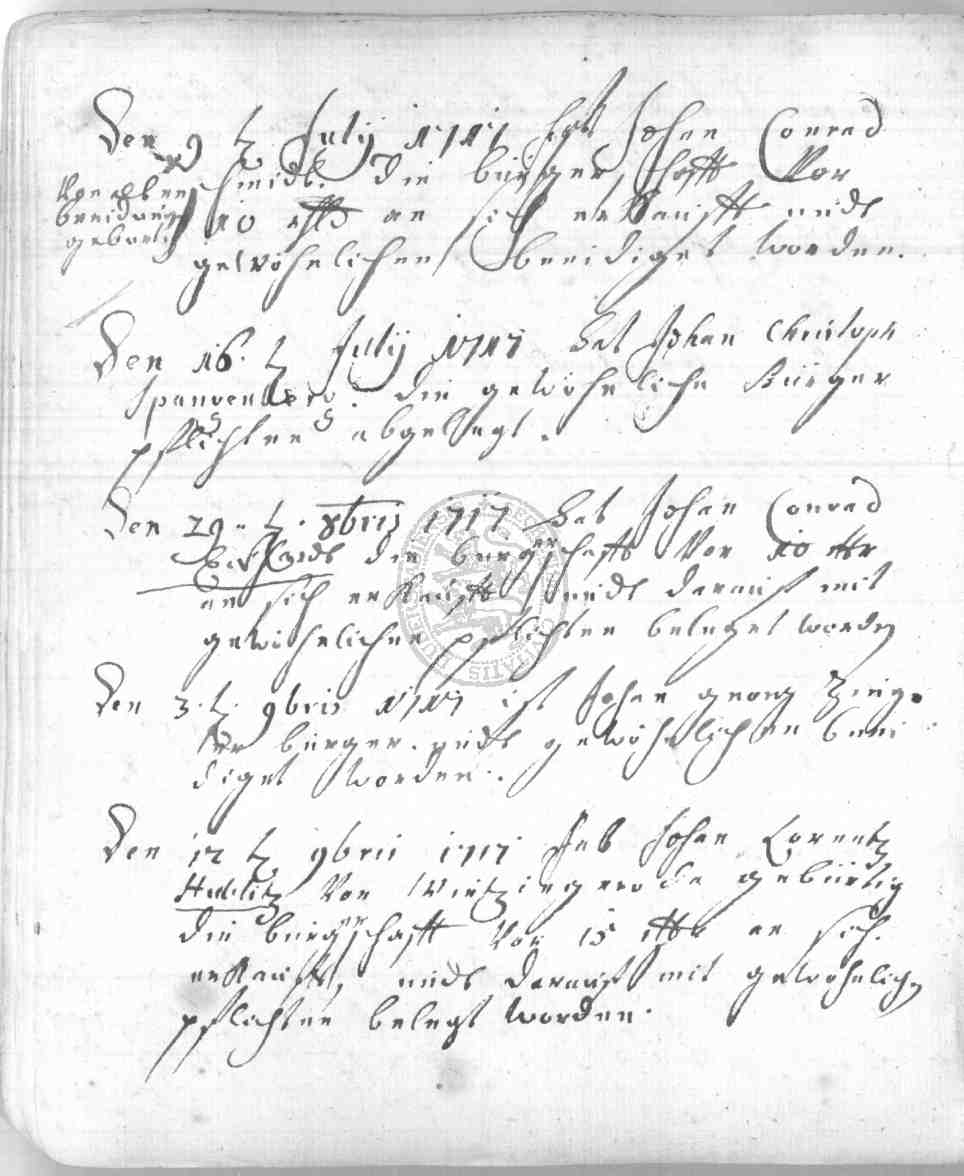 Den 9 t July 1717 hat Johan Conrad
schmidt. die bürgerschafft Vor
Von
gebürtig
10 rthlr an sich erkaufft undt
gewöhnlichen beeidiget worden.
Den 16. t July 1717 hat Johan Christoph
Spangenberg. die gewöhnliche Bürger
pflichten abgelegt.
Den 29. t. 8bris 1717 hat Johan Conrad
die bürgerschafft Vor 10 rthlr
an sich erkaufft undt darauf mit
gewöhnlichen pflichten beleget worden
Den 3. t. 9bris 1717 ist Johan georg
bürger. undt gewöhnlichen beei
diget worden.
Den 12 t 9bris 1717 hat Johan Lorentz
Von Wintzingeroda gebürtig
die bürgerschafft Vor 15 rthlr an sich.
erkaufft, undt darauf mit gewöhnlich
pflichten belegt worden.